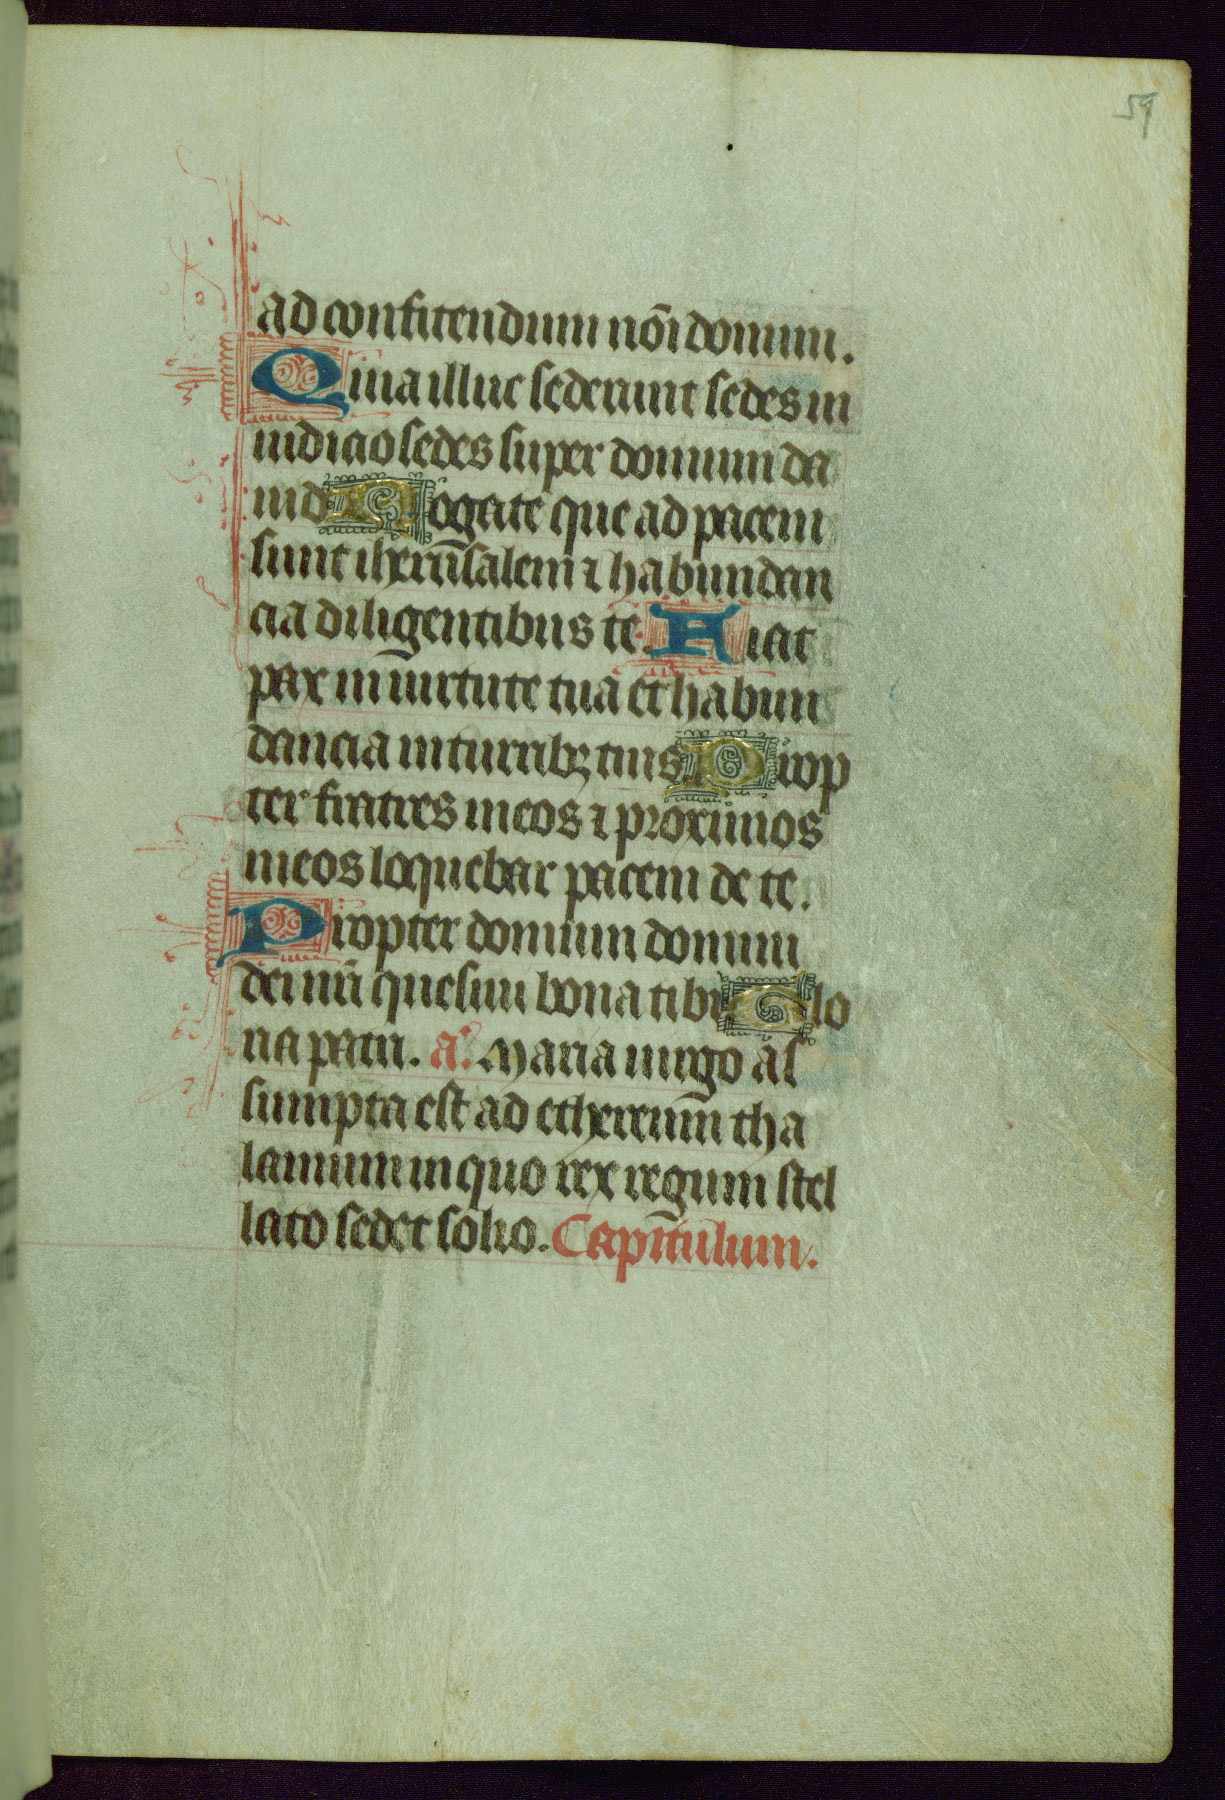 59
ad confitendum nōi domini.
Quia illuc sederunt sedes in
iudicio sedes super domum da
uid Rogate que ad pacem
sunt iherūsalem ⁊ habundan
cia diligentibus te. Fiat
pax in uirtute tua et habun
dancia in turribꝫ tuis Prop
ter fratres meos ⁊ proximos
meos loquebar pacem de te.
Propter domum domini
dei nr̄i quesiui bona tibi Glo
ria patri. a. Maria uirgo as
sumpta est ad ethereum tha
lamum in quo rex regum stel
lato sedet solio. Capitulum.